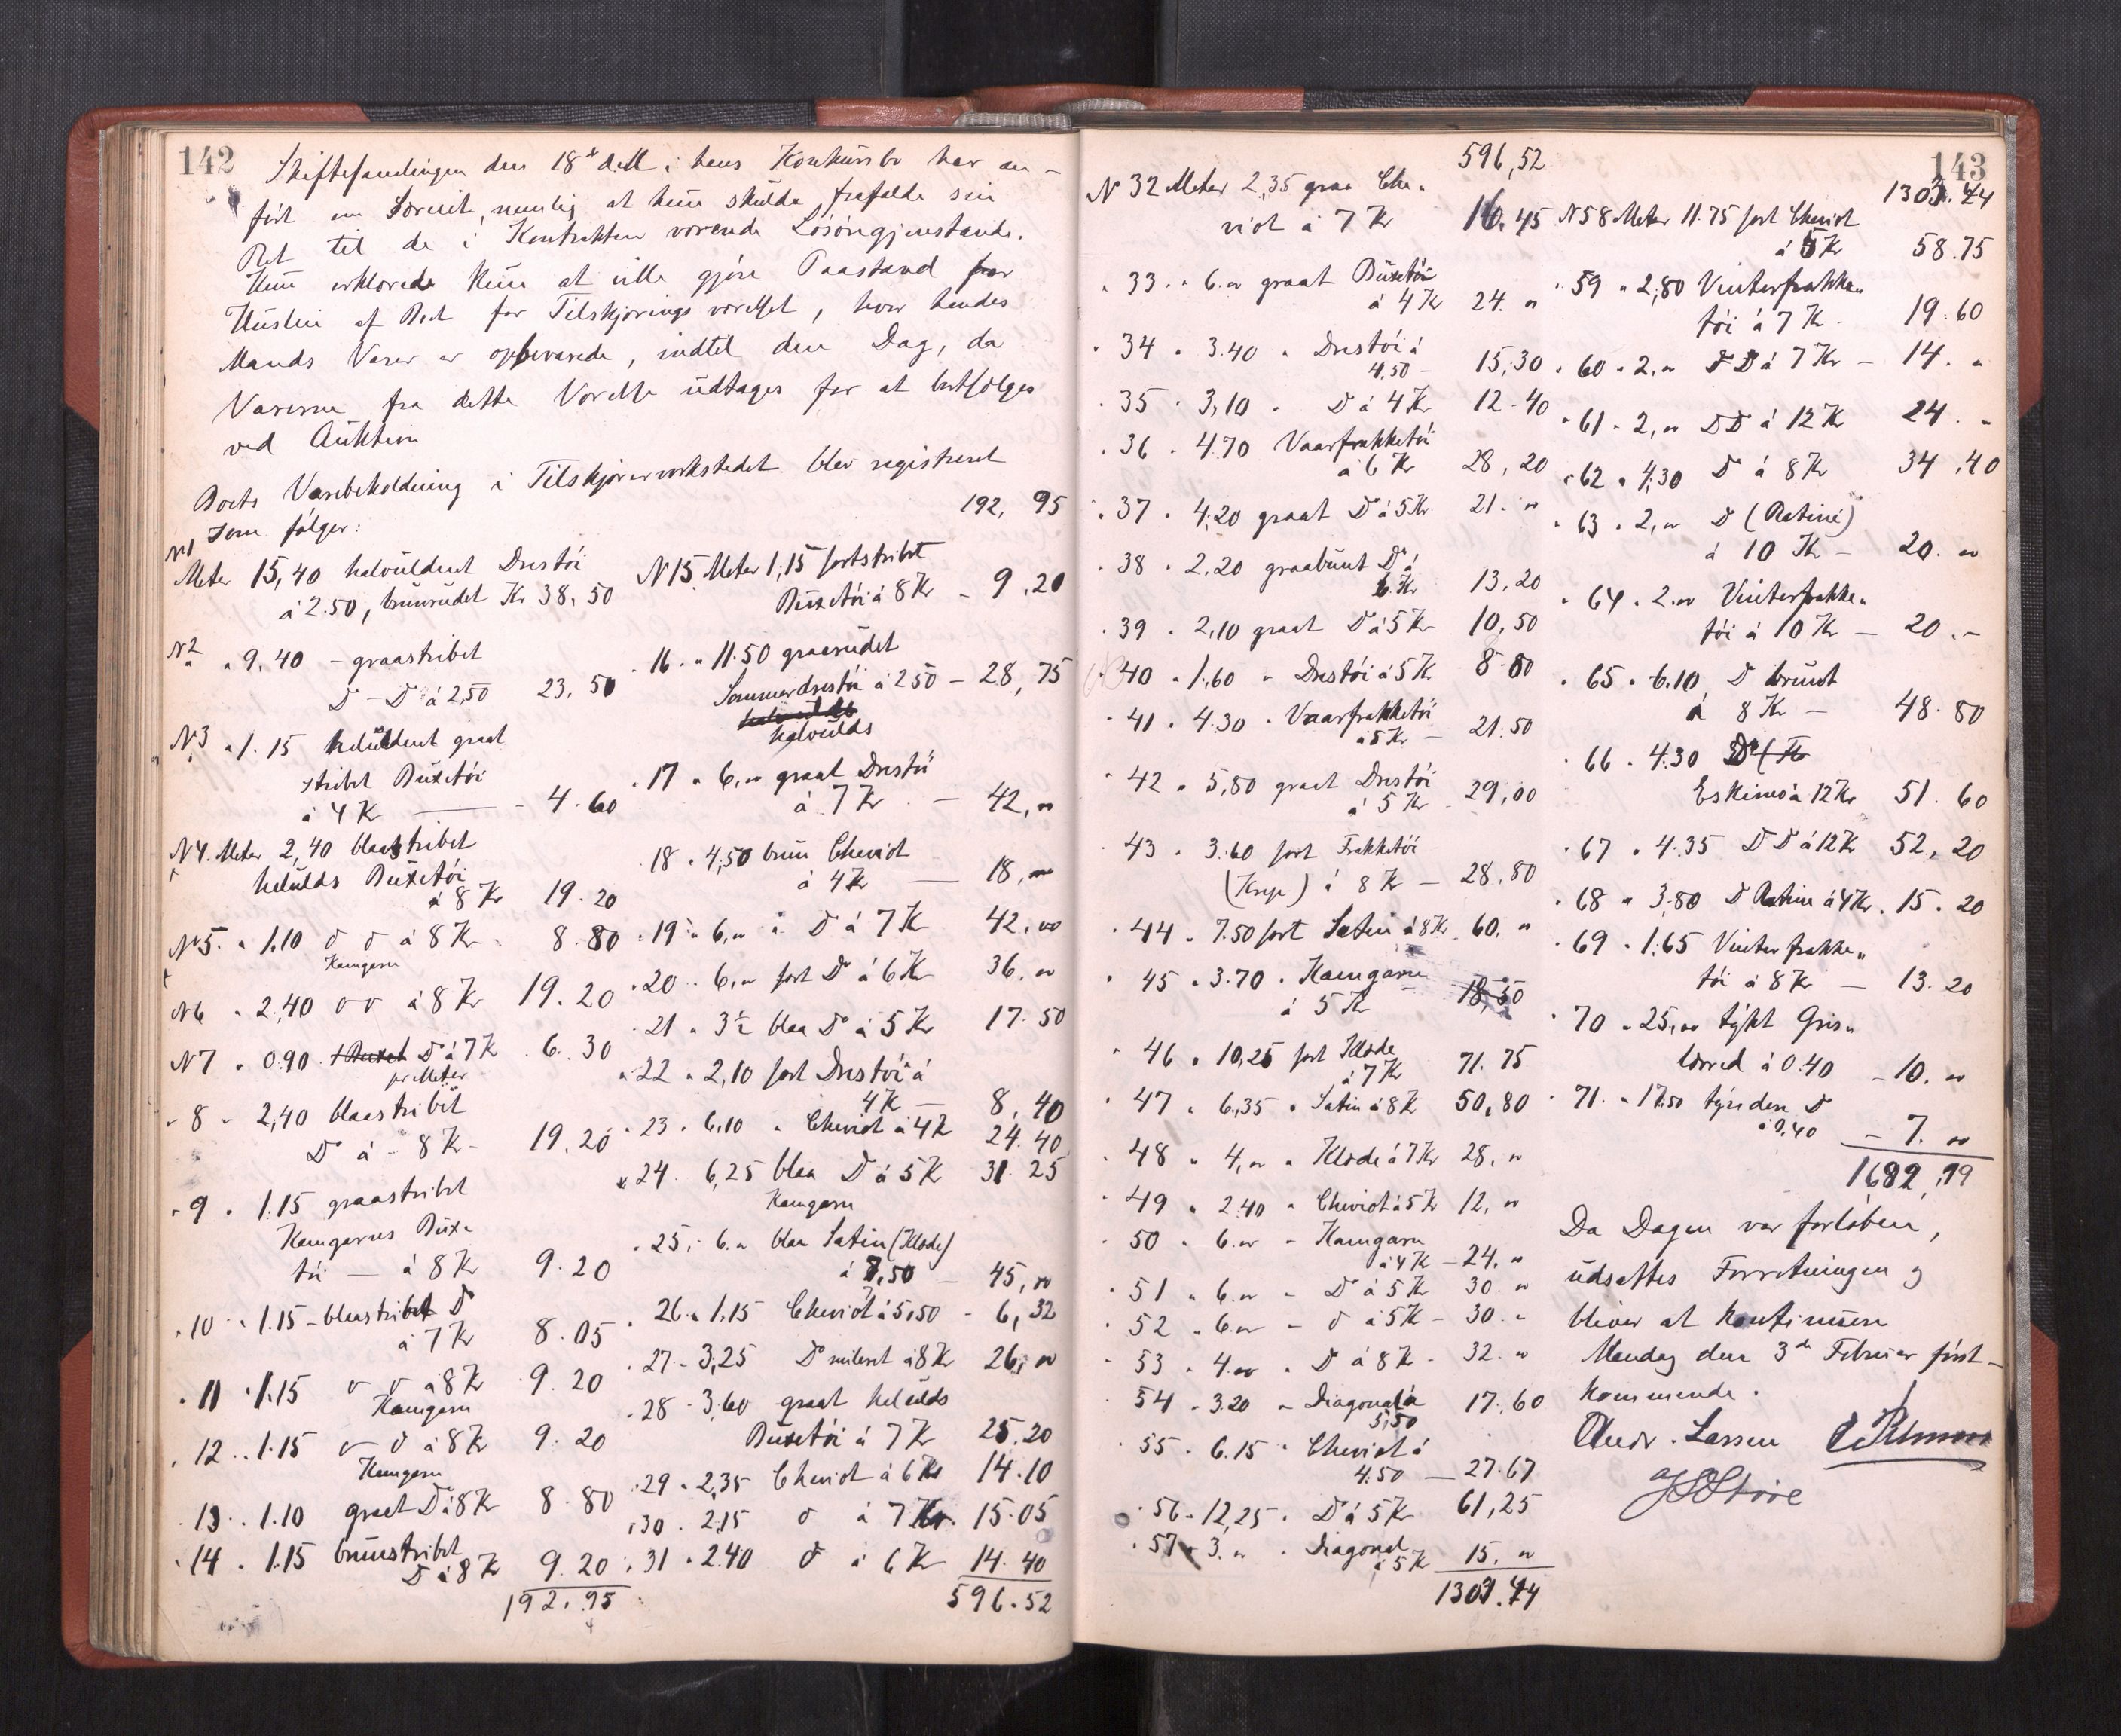 142
Skiftesamlingen den 18de ds. i hans Konkursbo har an-
ført en Særeit, nemlig at hun skulde frafalde sin
Ret til de i Kontrakten værende Løsøregjenstande.
Hun erklærede kun at ville gjøre Paastand paa
Husleie af Boet for Tilskjæringsværelset, hvor hendes
Mands Varer er opbevarede, indtil den Dag, da
Varerne fra dette Værelse udtages for at bortsælges
ved Auktion
Boets Varebeholdning i Tilskjærerverkstedet blev registreret
som følger:
N1
Meter 15,40 halvuldent Drestøi
à 2.50, brunrudet Kr 38,50
N2 " 9,40 - graastribet
Do - Do à 2,50 23,50
N3 " 1.15 heluldent graat
stribet Buxetøi
à 4 Kr - 4.60
N4. Meter 2,40 blaastribet
helulds Buxetøi
à 8 Kr 19.20
N5. " 1.10 do do à 8 Kr - 8.80
Kamgarn
N6 " 2,40 do do à 8 Kr 19.20
N7 " 0.90 Do à 7 Kr 6.30
pr Meter
" 8 " 2,40 blaastribet
Do à 8 Kr - 19.20
" 9 " 1.15 graastribet
Kamgarns Buxe-
tøi - à 8 Kr 9.20
" 10 " 1.15 - blaastribet Do
à 7 Kr 8.05
" 11 " 1.15 do do à 8 Kr 9.20
Kamgarn
" 12 " 1.15 do do à 8 Kr 9.20
Kamgarn
" 13 " 1.10 graat Do à 8 Kr 8.80
" 14 " 1.15 brunstribet
Do à 8 Kr 9.20
192.95
192,95
N15 Meter 1,15 sortstribet
Buxetøi à 8 Kr - 9.20
" 16 " 11.50 graarudet
Sommerdrestøi à 2.50 - 28,75
halvulds
" 17 " 6," graat Drestøi
à 7 Kr - 42,"
" 18 " 4,50 brun Cheviot
à 4 Kr - 18,"
" 19 " 6," " Do à 7 Kr 42,"
" 20 " 6," sort Do à 6 Kr 36."
" 21 " 3½ blaa Do à 5 Kr 17.50
" 22 " 2,10 sort Drestøi à
4 Kr - 8,40
" 23 " 6,10 " Cheviot à 4 Kr 24.40
" 24. 6,25 blaa Do à 5 Kr 31.25
Kamgarn
" 25, 6." blaa Satin (Klæde)
à 7,50 - 45,"
" 26 " 1,15 Cheviot à 5,50 - 6,32
" 27 - 3,25 Do meleret à 8 Kr 26,"
" 28 - 3,60 graat helulds
Buxetøi à 7 Kr 25.20
" 29 " 2,35 Cheviot à 6 Kr 14.10
" 30 " 2,15 do à 7 Kr. 15.05
" 31 " 2.40 do à 6 Kr 14.40
596.52
143
596,52
N 32 Meter 2,35 graa Che-
viot à 7 Kr 16.45
" 33 " 6." graat Buxetøi
à 4 Kr 24."
" 34 " 3.40 " Drestøi à
4.50 - 15,30
" 35 " 3,10 " Do à 4 Kr 12.40
" 36 " 4.70 Vaarfrakketøi
à 6 Kr 28,20
" 37 " 4,20 graat Do à 5 Kr 21."
" 38 " 2,20 graabunt Do à
6 Kr 13,20
" 39 " 2,10 graat Do à 5 Kr 10,50
" 40 " 1,60 " Drestøi à 5 Kr 8.80
" 41 " 4.30 " Vaarfrakketøi
à 5 Kr - 21.50
" 42 " 5,80 graat Drestøi
à 5 Kr 29,00
" 43 " 3.60 sort Frakketøi
(Krep) à 8 Kr - 28.80
" 44 " 7.50 sort Satin à 8 Kr 60."
" 45 " 3.70 " Kamgarn
à 5 Kr 18,50
" 46 " 10,25 sort Klæde
à 7 Kr 71.75
" 47 " 6,35 " Satin à 8 Kr 50,80
" 48 " 4," " Klæde à 7 Kr 28,"
" 49 " 2.40 " Cheviot à 5 Kr 12,"
" 50 " 6." " Kamgarn
à 4 Kr - 24,"
" 51 " 6." " Do à 5 Kr 30."
" 52 " 6." " do à 5 Kr - 30."
" 53 " 4." " Do à 8 Kr - 32."
" 54 " 3.20 " Diagonal à
5,50 17.60
" 55 " 6.15 " Cheviot à
4.50 - 27.67
" 56 " 12,25 " Do à 5 Kr 61,25
" 57 " 3." " Diagonal
à 5 Kr 15."
1303.44
1303.44
N58 Meter 11.75 sort Cheviot
à 5 Kr 58.75
" 59 " 2,80 Vinterfrakke-
tøi à 7 Kr - 19.60
" 60 " 2," Do Do à 7 Kr - 14."
" 61 " 2," Do Do à 12 Kr 24."
" 62 " 4,30 Do à 8 Kr 34,40
" 63 " 2," Do (Ratiné)
à 10 Kr - 20."
" 64 " 2." Vinterfrakke-
tøi à 10 Kr - 20.-
" 65 " 6.10 Do brunt
à 8 Kr - 48.80
" 66 " 4.30 Do
Eskimo à 12 Kr 51.60
" 67 " 4.35 Do Do à 12 Kr 52,20
" 68 " 3,80 Do Ratine à 4 Kr. 15.20
" 69 " 1,65 Vinterfrakke-
tøi à 8 Kr - 13.20
" 70 " 25," tykt Gris-
lærred à 0.40 - 10."
" 71 " 17.50 tyndere Do
à 0,40 - 7."
1682,19
Da Dagen var forløben,
udsattes Forretningen og
bliver at kontinuere
Mandag den 3de Februar først-
kommende.
Andr. Larsen